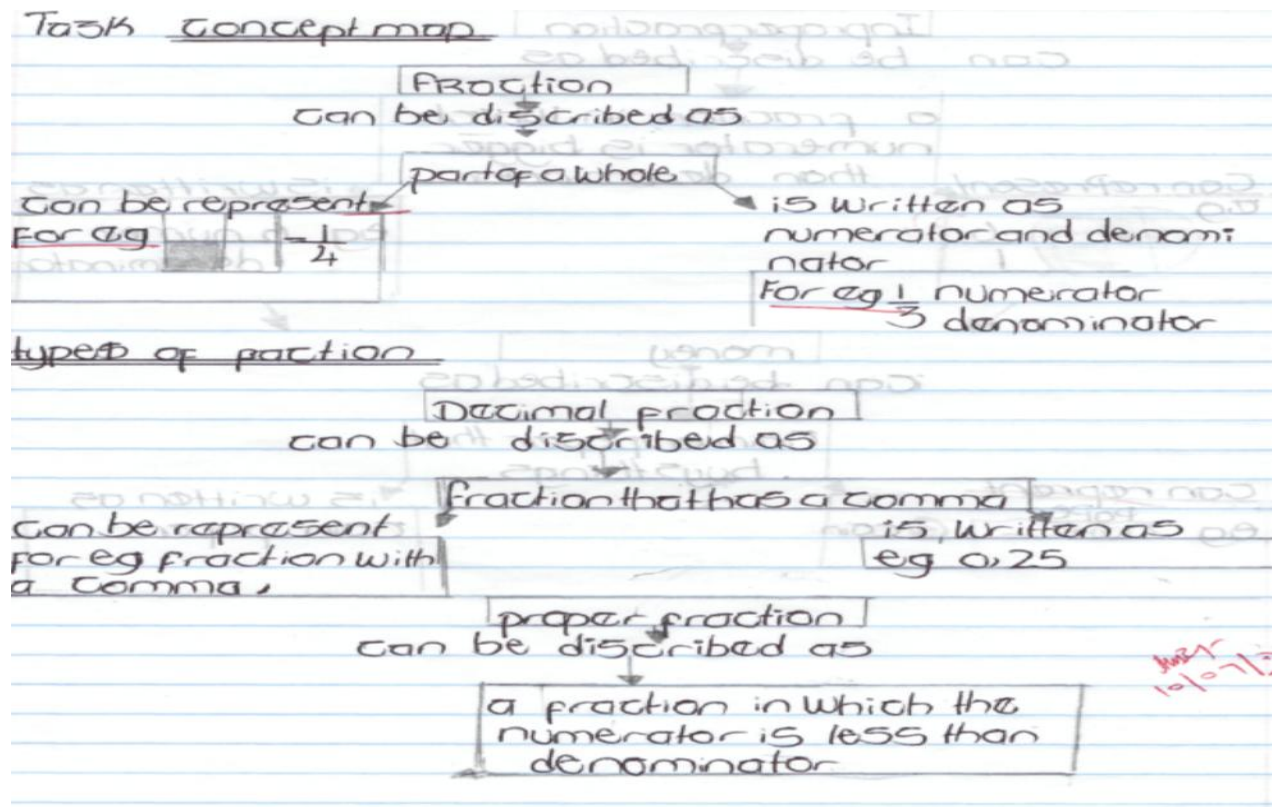 Task concept map
Fraction
can be discribed as
part of a whole
can be represent
For eg = 1/4
is written as
numerator and denomi
nator
For eg 1/3 numerator
denominator
types of faction
Decimal fraction
can be discribed as
fraction that has a comma
can be represent
For eg fraction with
a comma,
is written as
eg 0,25
proper fraction
can be discribed as
10/07/
a fraction in which the
numerator is less than
denominator